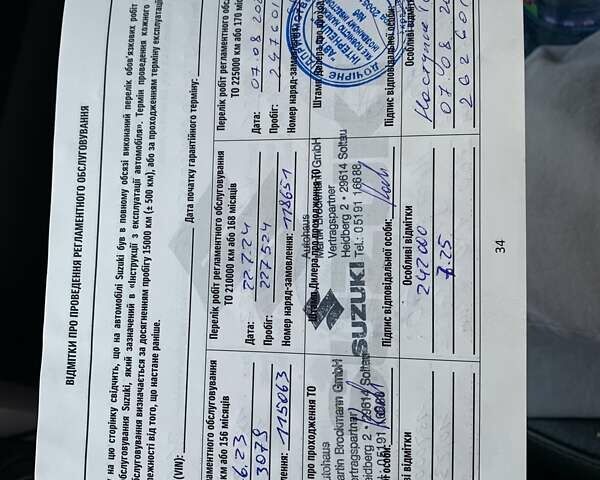 ВІДМІТКИ ПРО ПРОВЕДЕННЯ РЕГЛАМЕНТНОГО ОБСЛУГОВУВАННЯ
на цю сторінку свідчить, що на автомобілі Suzuki був в повному обсязі виконаний перелік обов'язкових робіт
обслуговування Suzuki, який зазначений в «Інструкції з експлуатації автомобіля». Термін проведення кожного
обслуговування визначається за досягненням пробігу 15000 км (± 500 км), або за проходженням терміну експлуатації
залежності від того, що настане раніше.
(VIN):
Дата початку гарантійного терміну:
регламентного обслуговування
км або 156 місяців
6.23
3078
115063
про проходження ТО
Autohaus
Martin Brockmann GmbH
Heidberg 2 • 29614 Soltau
05191
особи:
відмітки
Перелік робіт регламентного обслуговування
ТО 210000 км або 168 місяців
Дата: 22.7.24
Пробіг: 227524
Номер наряд-замовлення: 118651
Штамп Дилера про проходження ТО
SUZUKI
Autohaus
Martin Brockmann GmbH
Vertragspartner
Heidberg 2 • 29614 Soltau
Tel.: 05191 16688
Підпис відповідальної особи:
Особливі відмітки
242000
7.25
Перелік робіт регламентного обслуговування
ТО 225000 км або 170
Дата: 07.08.20
Пробіг: 247601
Номер наряд-замовлення
Штамп Дилера про
ДОЧІРНЄ
Підпис відповідальної особи:
Особливі
Наступне
07.08.
262601
34